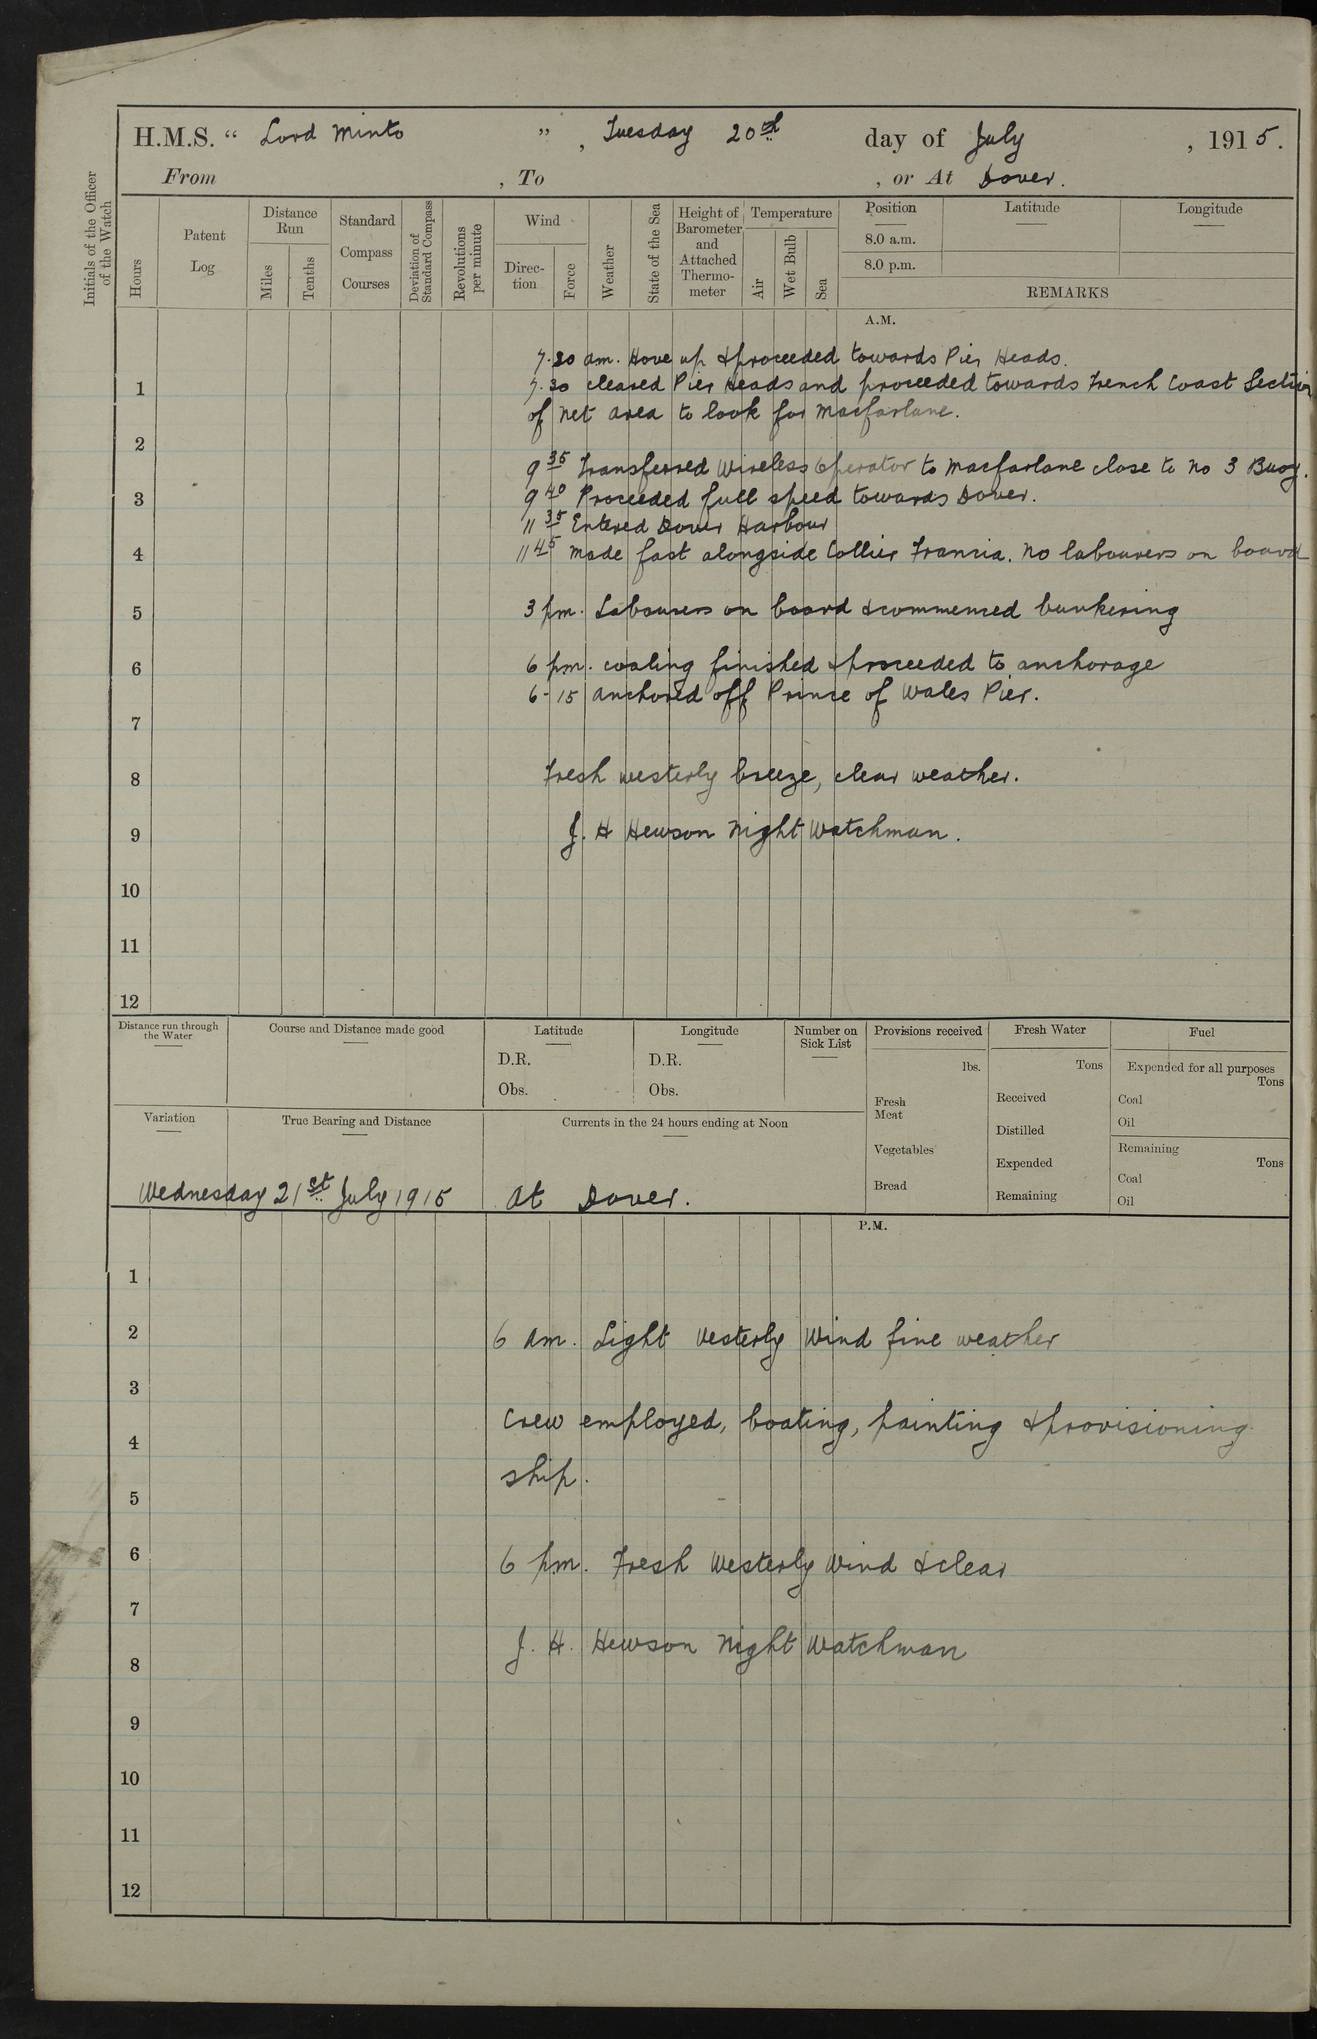 H.M.S. “ Lord Minto ” , Tuesday 20th day of July , 1915.
From , To , or At Dover.
Initials of the Officer of the Watch
Hours
Patent Log
Distance Run
Miles
Tenths
Standard Compass Courses
Deviation of Standard Compass
Revolutions per minute
Wind
Direc-tion
Force
Weather
State of the Sea
Height of Barometer and Attached Thermo-meter
Temperature
Air
Wet Bulb
Sea
Position Latitude Longitude
8.0 a.m.
8.0 p.m.
REMARKS
A.M.
7.20 am. Hove up & proceeded towards Pier Heads.
1 7.30 cleared Pier Heads and proceeded towards French Coast Section
of net area to look for Macfarlane.
2
9 35 Transferred Wireless Operator to Macfarlane close to No 3 Buoy.
3 9 40 Proceeded full speed towards Dover.
11 35 Entered Dover Harbour
4 11 45 made fast alongside Collier Francia. No labourers on board
5 3 pm. Labourers on board & commenced bunkering
6 6 pm. coaling finished & proceeded to anchorage
6-15 anchored off Prince of Wales Pier.
7
8 Fresh westerly breeze, clear weather.
9 J. H Hewson Night Watchman.
10
11
12
Distance run through the Water
Course and Distance made good
Latitude
D.R.
Obs.
Longitude
D.R.
Obs.
Number on Sick List
Provisions received
lbs.
Fresh Meat
Vegetables
Bread
Fresh Water
Tons
Received
Distilled
Expended
Remaining
Fuel
Expended for all purposes
Tons
Coal
Oil
Remaining
Tons
Coal
Oil
Variation
True Bearing and Distance
Currents in the 24 hours ending at Noon
Wednesday 21st July 1915 At Dover.
P.M.
1
2 6 am. Light Westerly Wind fine weather
3
4 Crew employed, boating, painting & provisioning
ship.
5
6 6 pm. Fresh Westerly Wind & clear
7
8 J. H. Hewson Night Watchman
9
10
11
12